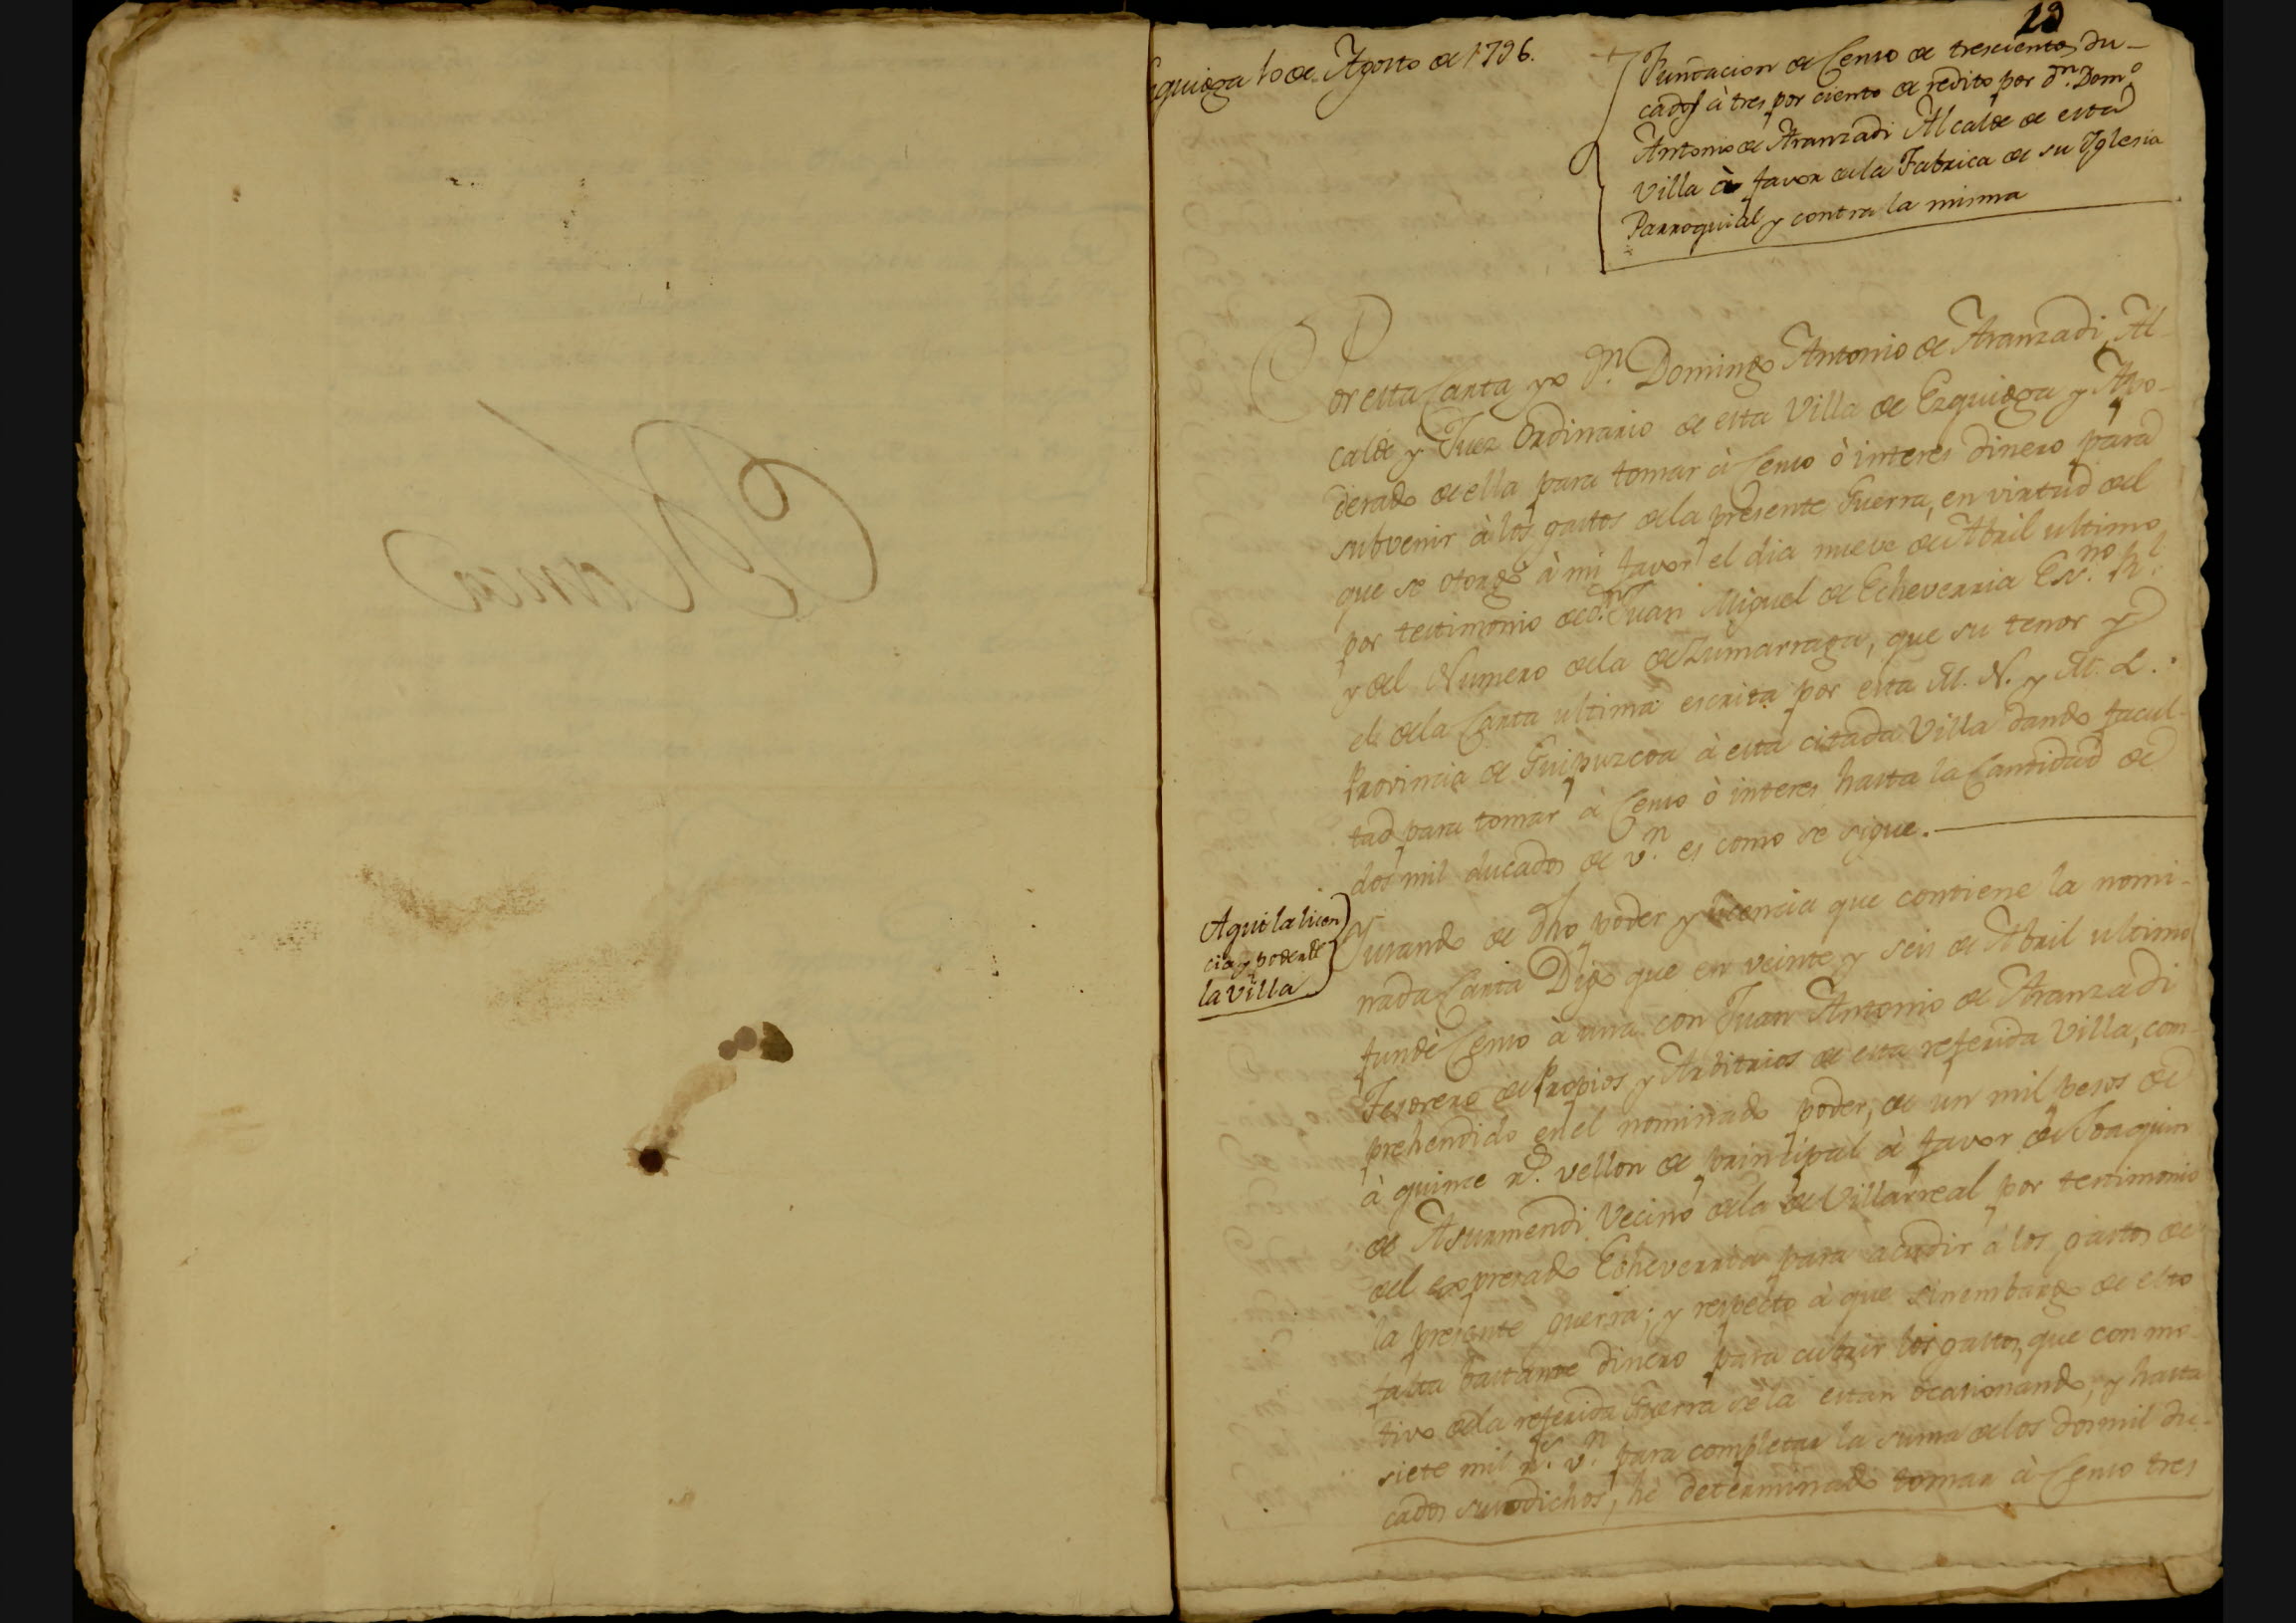 19
Ezquioga 10 de Agosto de 1796.
Fundacion de Censo de trescientos du-
cados à tres por ciento de redito por Dn. Domo
Antonio de Aranzadi Alcalde de esta
Villa à favor de la Fabrica de su Yglesia
Parroquial y contra la misma
Por esta Carta yo Dn. Domingo Antonio de Aranzadi, Al-
calde y Juez Ordinario de esta Villa de Ezquioga y Apo-
derado de ella para tomar à Censo ò interes dinero para
subvenir à los gastos de la presente Guerra, en virtud del
que se otorgó à mi favor el dia nueve de Abril ultimo
por testimonio de Dn. Juan Miguel de Echeverria Esno. Rl.
y del Numero de la de Zumarraga, que su tenor y
el de la Carta ultima escrita por esta M. N. y M. L.
Provincia de Guipuzcoa à esta citada Villa dando facul-
tad para tomar à Censo ò interes hasta la Cantidad de
dos mil ducados de vn. es como se sigue.
Aqui la licen
cia y poder de
la Villa
Y usando de dho poder y licencia que contiene la nomi-
nada Carta Digo que en veinte y seis de Abril ultimo
fundè Censo à una con Juan Antonio de Aranzadi
Tesorero de Propios y Arbitrios de esta referida Villa, com-
prehendido en el nominado poder, de un mil pesos de
à quince rs. vellon de principal à favor de Joaquin
de Asurmendi Vecino de la de Villarreal por testimonio
del expresado Echeverria para acudir à los gastos de
la presente guerra; y respecto à que sinembargo de esto
falta bastante dinero para cubrir los gastos, que con mo-
tivo de la referida Guerra se la estan ocasionando, y hasta
siete mil rs. vn. para completar la suma de los dos mil du-
cados susodichos, hè determinado tomar à Censo tres